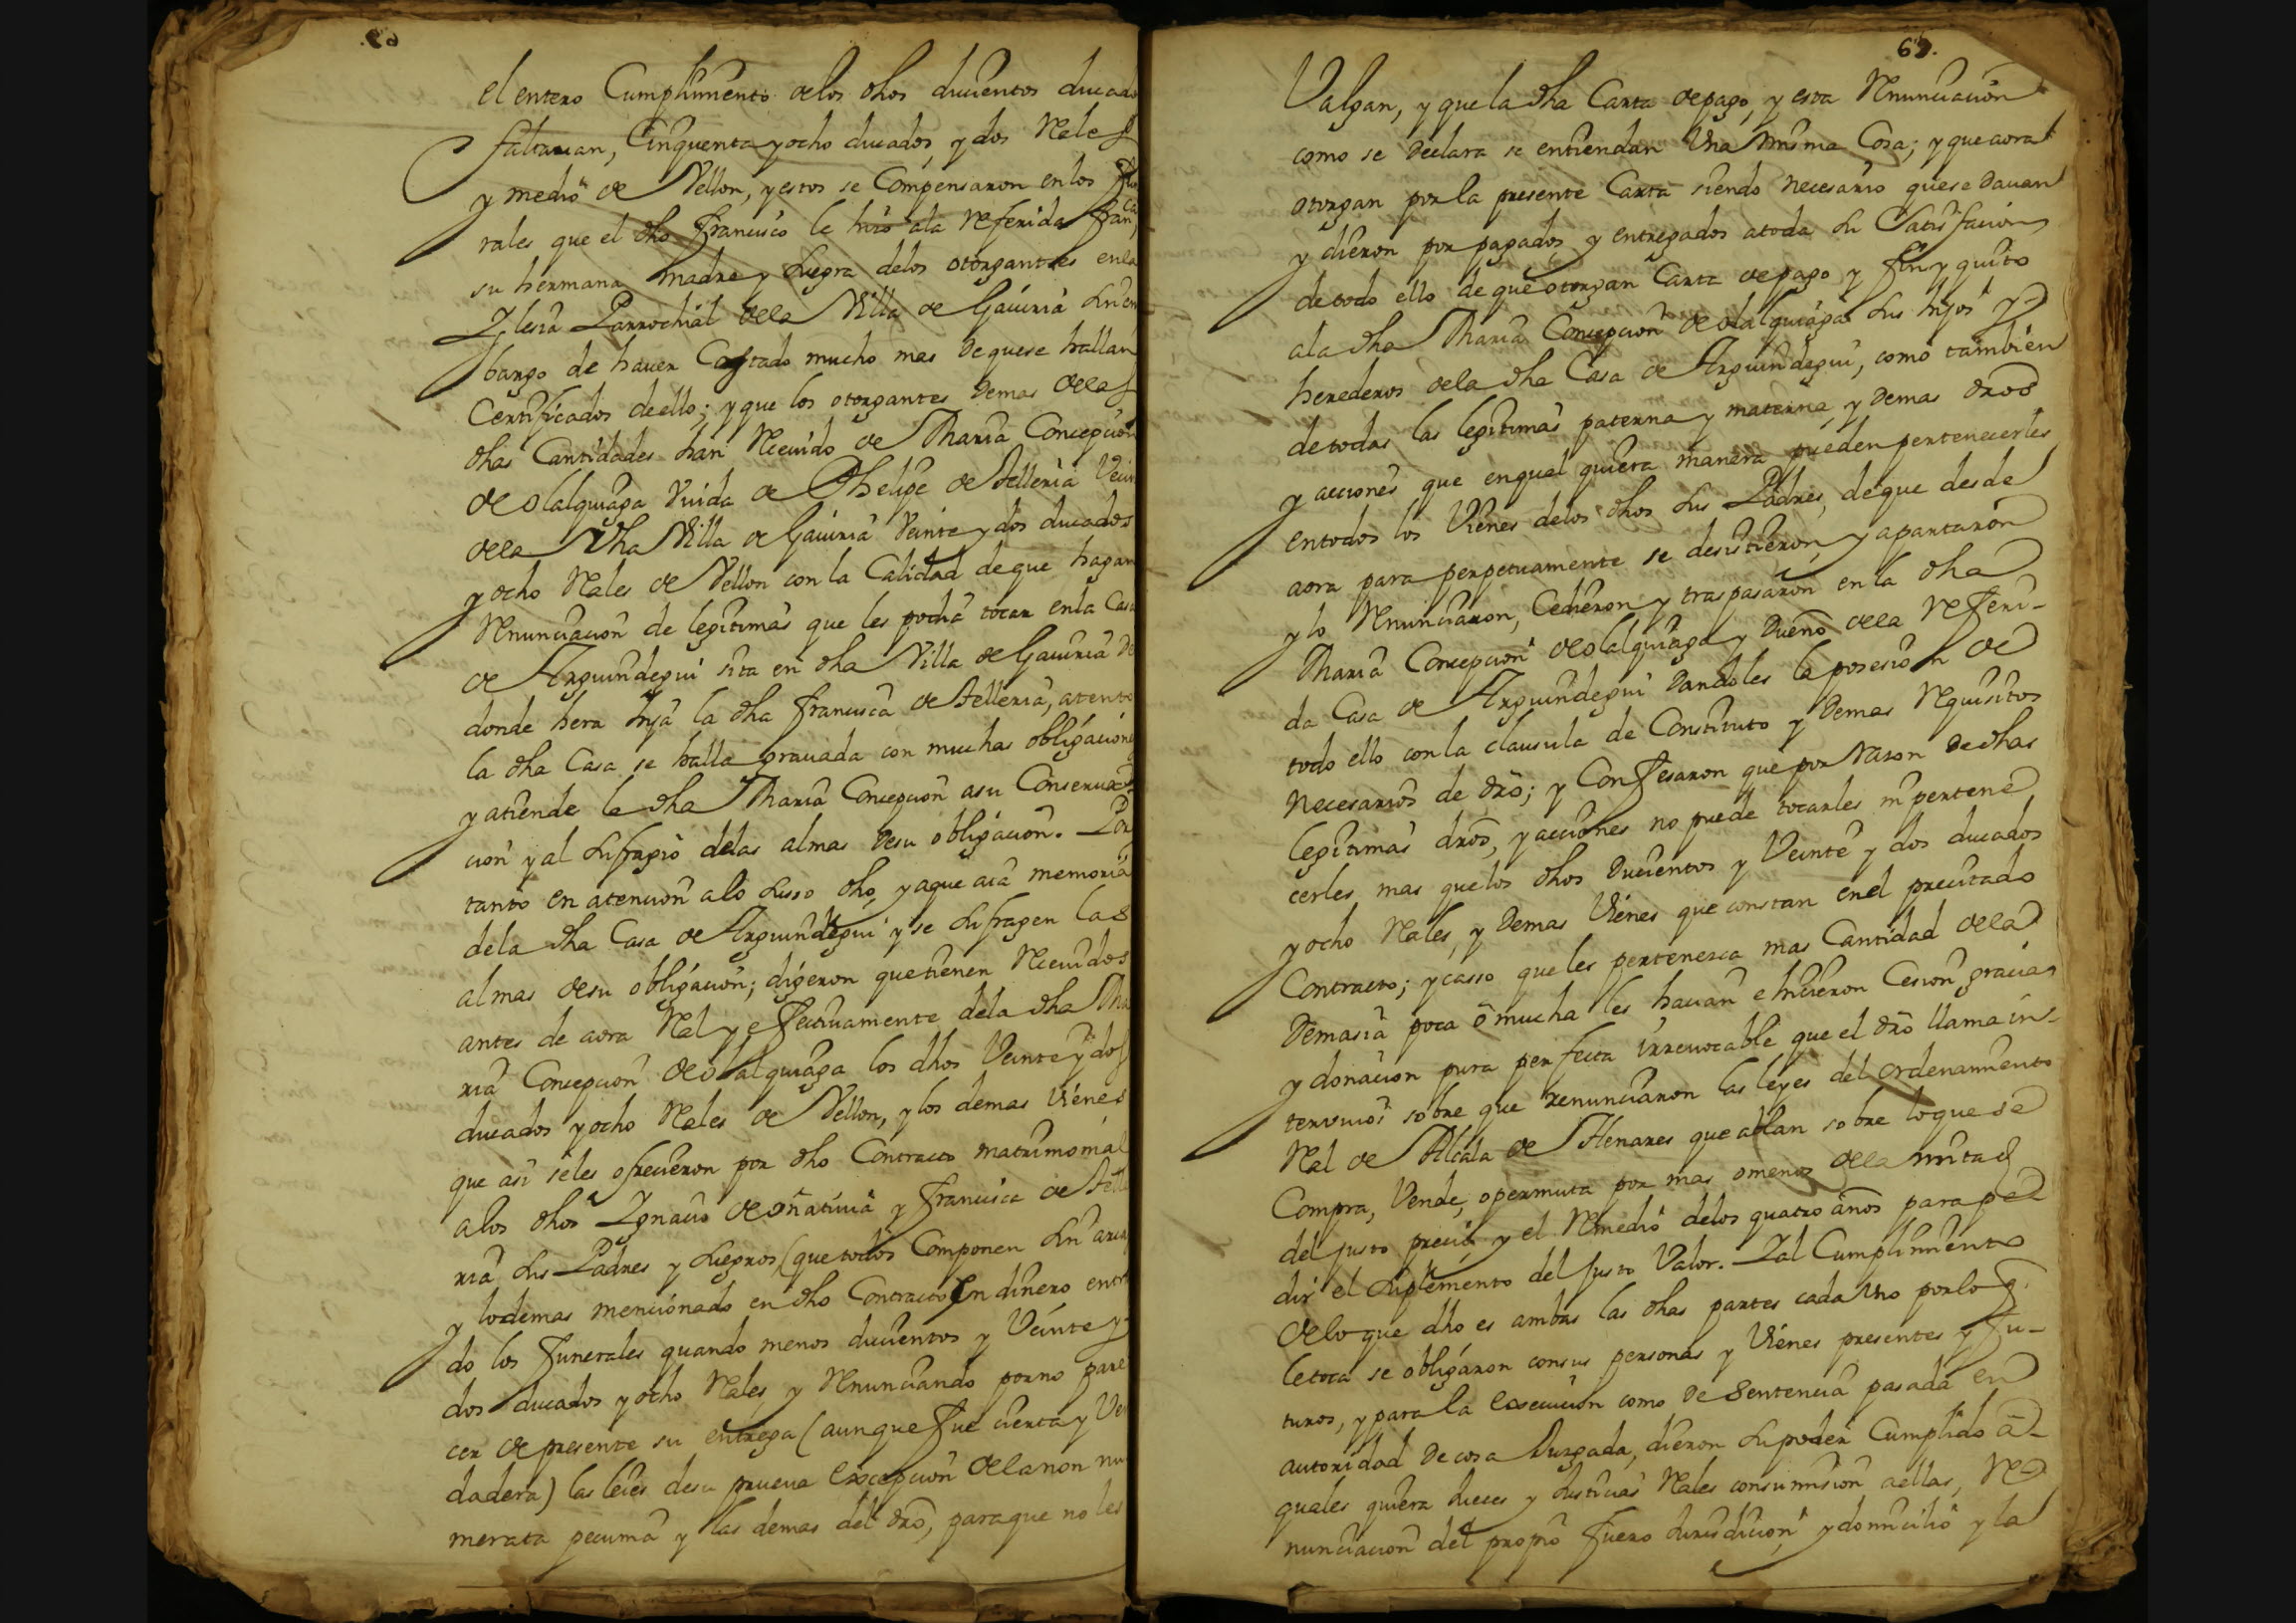 el entero Cumplimento de los dhos ducientos ducad
faltauan, Cinquenta y ocho ducados, y dos Rales
y medio de Vellon, y estos se Compensaron en los fu
rales que el dho Francisco le hizo ala referida Franca
su hermana madre y suegra delos otorgantes en la
Iglesia Parrochial dela Villa de Gauiria sin em
bargo de hauer Costado mucho mas de que se hallan
Certificados de ello; y que los otorgantes demas de las
dhas Cantidades han Receuido de Maria Concepcion
de Olalquiaga Viuda de Phelipe de Telleria Vecin
dela dha Villa de Gauiria Veinte y dos ducados
y ocho Rales de Vellon con la Calidad de que hagan
Renunciacion de legitimas que les podia tocar en la Casa
de Arguindegui sita en dha Villa de Gauiria de
donde hera hija la dha Francisca de Telleria, atento
la dha Casa se halla grauada con muchas obligacione
y atiende la dha Maria Concepcion a su Conserua
cion y al sufragio delas almas de su obligacion. Por
tanto en atencion alo suso dho, y a que aia memoria
dela dha Casa de Arguindegui y se sufragen las
almas de su obligacion; digeron que tienen Receuidos
antes de aora Ral y efectiuamente dela dha Ma
ria Concepcion de Olalquiaga los dhos Veinte y dos
ducados y ocho Rales de Vellon, y los demas Vienes
que asi se les ofrecieron por dho Contracto matrimonial
alos dhos Ignacio de Oñatiuia y Francisca de Telle
ria sus Padres y suegros (que todos Componen sin arca
y lo demas mencionado en dho Contracto) en dinero entr
do los funerales quando menos ducientos y Veinte y
dos ducados y ocho Rales, y Renunciando por no pare
cer de presente su entrega (aunque fue cierta y Ve
dadera) las leies de su prueua excepcion dela non nu
merata pecunia y las demas del dro, para que no les
69.
Valgan, y que la dha Carta de pago, y esta Renunciacion
como se declara se entiendan Vna misma Cosa; y que aora
otorgan por la presente Carta siendo necesario que se dauan
y dieron por pagados, y entregados a toda su Satisfacion
de todo ello de que otorgan Carta de pago y fin y quito
ala dha Maria Concepcion de Olalquiaga sus hijos y
herederos dela dha Casa de Arguindegui, como tambien
de todas las legitimas paterna y materna, y demas dros
y acciones que en qual quiera manera pueden pertenecerles
en todos los Vienes delos dhos sus Padres, de que desde
aora para perpetuamente se desistieron, y apartaron
y lo Renunciaron, Cedieron y traspasaron en la dha
Maria Concepcion de Olalquiaga y Dueño dela referi-
da Casa de Arguindegui dandoles la posesion de
todo ello con la clausula de Constituto y demas Requisitos
necesarios de dro; y Confesaron que por razon de dhas
legitimas dros, y acciones no puede tocarles ni pertene
cerles mas que los dhos Ducientos y Veinte y dos ducados
y ocho Rales, y demas Vienes que constan en el precitado
Contracto; y casso que les pertenezca mas Cantidad dela
Demasia poca o mucha les hacian e hicieron Cesion gracia
y donacion pura perfecta irreuocable que el dro llama in-
teruiuos sobre que renunciaron las leyes del ordenamiento
Ral de Alcala de Henares que ablan sobre lo que se
Compra, Vende, o permuta por mas o menos dela mitad
del justo precio y el Remedio delos quatro años para pe
dir el suplemento del justo Valor. Y al Cumplimiento
de lo que dho es ambas las dhas partes cada Vno por lo q.
le toca se obligaron con sus personas y Vienes presentes y fu-
turos, y para la execucion como de Sentencia pasada en
autoridad de cosa Juzgada, dieron su poder Cumplido a
quales quiera Jueces y Justicias Rales con sumision a ellas, Re
nunciacion del propio fuero Jurisdicion, y domicilio y la